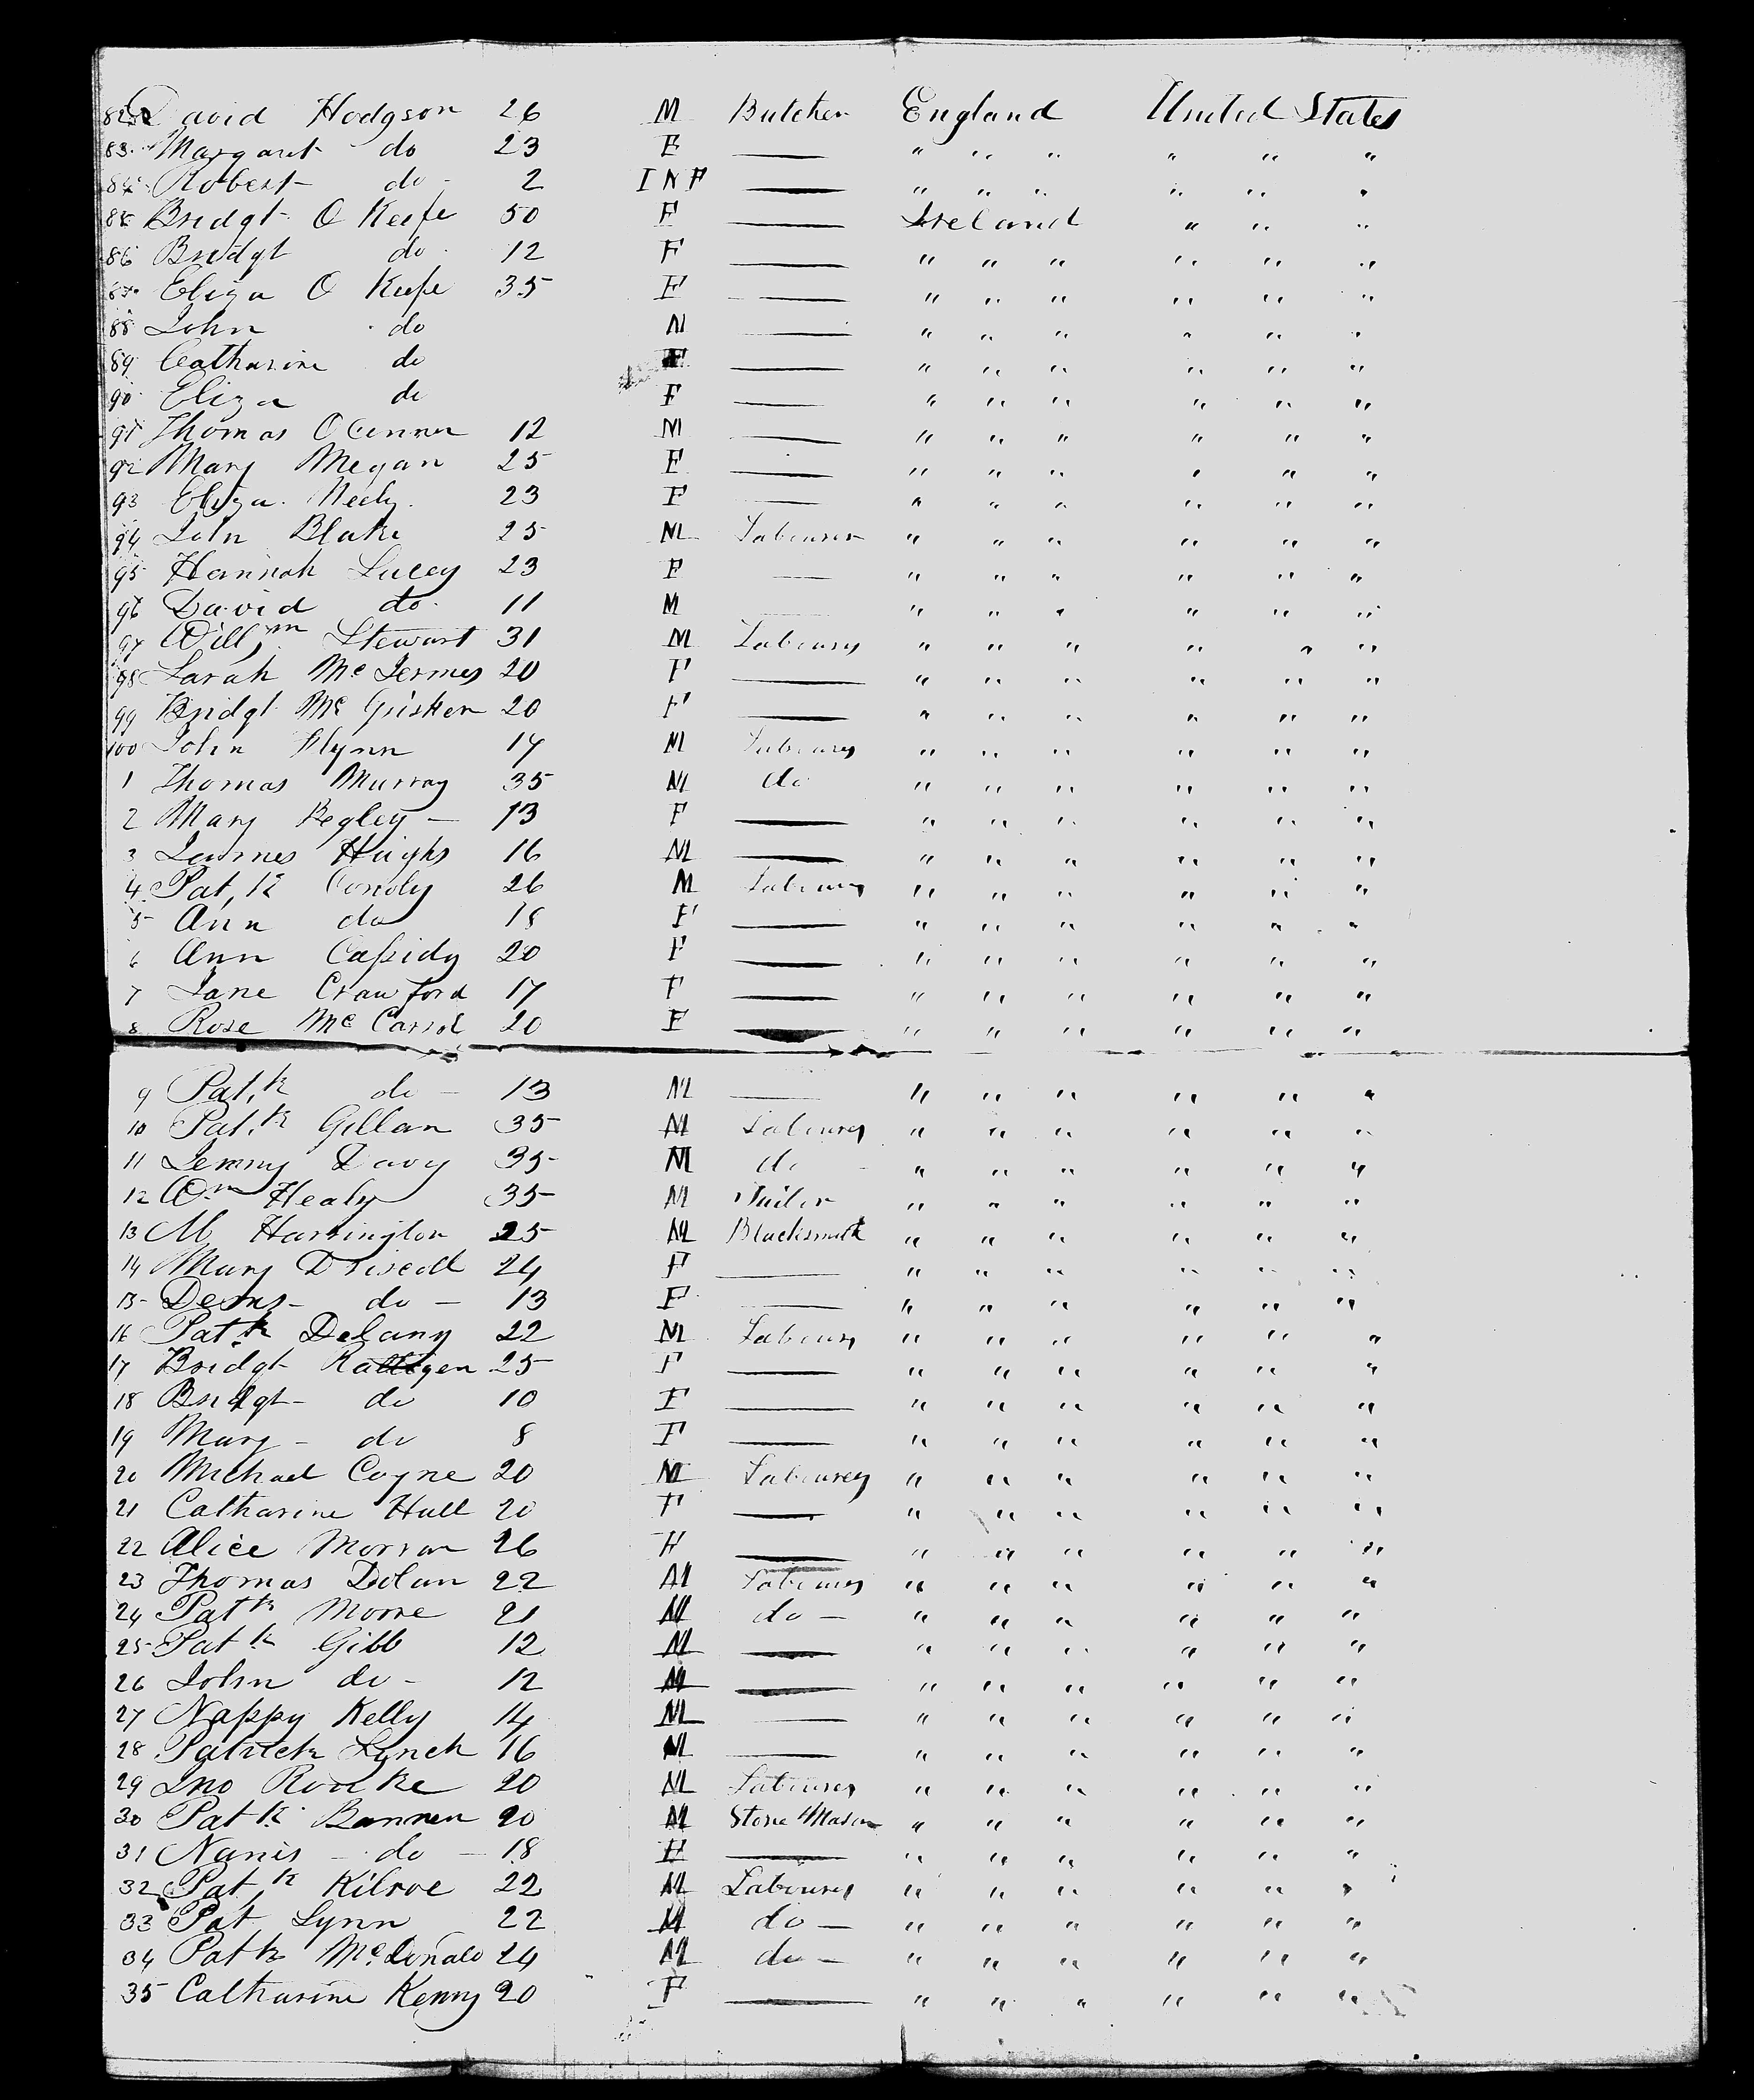 82 David Hodgson 26 M Butcher England United States
83 Margaret do 23 F — " " " " " "
84 Robert do - 2 INF — " " " " " "
85 Bridgt O Keefe 50 F — Ireland " " "
86 Bridgt do 12 F — " " " " " "
87 Eliza O Keefe 35 F — " " " " " "
88 John do M — " " " " " "
89 Catharine do F — " " " " " "
90 Eliza do F — " " " " " "
91 Thomas OConner 12 M — " " " " " "
92 Mary Megan 25 F — " " " " " "
93 Eliza Neely 23 F — " " " " " "
94 John Blake 25 M Labourer " " " " " "
95 Hannah Lucey 23 F — " " " " " "
96 David do 11 M — " " " " " "
97 Willm Stewart 31 M Labourer " " " " " "
98 Sarah Mc 20 F — " " " " " "
99 Bridgt Mc Gusker 20 F — " " " " " "
100 John Flynn 17 M Labourer " " " " " "
1 Thomas Murray 35 M do " " " " " "
2 Mary Begley — 13 F — " " " " " "
3 James Hughs 16 M — " " " " " "
4 Pat,k Conoly 26 M Labourer " " " " " "
5 Ann do 18 F — " " " " " "
6 Ann Cassidy 20 F — " " " " " "
7 Jane Crawford 17 F — " " " " " "
8 Rose Mc Carrol 20 F — " " " " " "
9 Pat,k do — 13 M — " " " " " "
10 Pat,k Gillan 35 M Labourer " " " " " "
11 Jemmy Davy 35 M do " " " " " "
12 Wm Healy 35 M Tailor " " " " " "
13 M Harrington 25 M Blacksmith " " " " " "
14 Mary Driscoll 24 F — " " " " " "
15 Denis - do — 13 F — " " " " " "
16 Pat,k Delany 22 M Labourer " " " " " "
17 Bridgt Rattigen 25 F — " " " " " "
18 Bridgt - do 10 F — " " " " " "
19 Mary - do 8 F — " " " " " "
20 Michael Coyne 20 M Labourer " " " " " "
21 Catharine Hull 20 F — " " " " " "
22 Alice Morran 26 F — " " " " " "
23 Thomas Dolan 22 M Labourer " " " " " "
24 Patk Moore 21 M do — " " " " " "
25 Patk Gibb 12 M — " " " " " "
26 John do - 12 M — " " " " " "
27 Nappy Kelly 14 M — " " " " " "
28 Patrick Lynch 16 M — " " " " " "
29 Jno Roorke 20 M Labourer " " " " " "
30 Patk Bannen 20 M Stone Mason " " " " " "
31 Nanis - do — 18 F — " " " " " "
32 Patk Kilroe 22 M Labourer " " " " " "
33 Pat Lynn 22 M do — " " " " " "
34 Patk McDonald 24 M do — " " " " " "
35 Catharine Kenny 20 F — " " " " " "